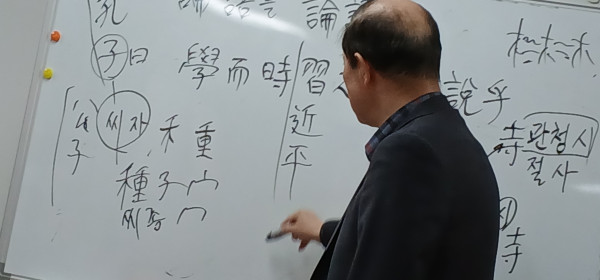 孔
論 語 言 論
子曰 學而時習 說乎
近平
子
씨자
禾 重
種子
씨종
寺 관청시
절사
寺